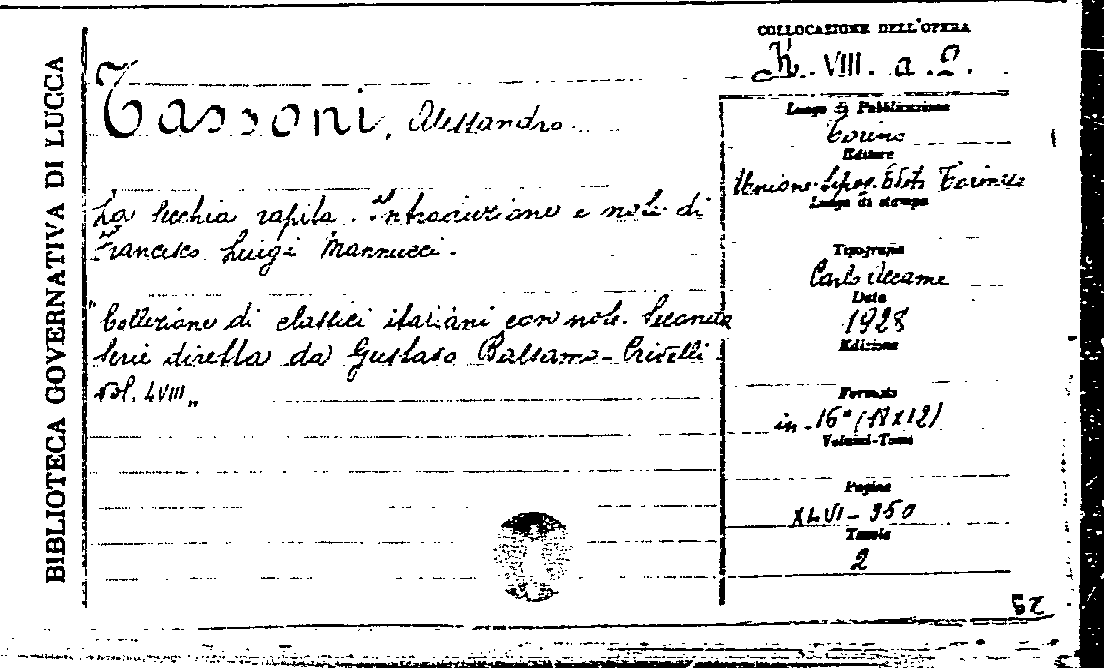 BIBLIOTECA GOVERNATIVA DI LUCCA
COLLOCAZIONE DELL'OPERA
K. VIII. a. 2.
Tassoni, Alessandro
La Secchia rapita. Introduzione e note di
Francesco Luigi Mannucci.
"Collezione di classici italiani con note. Seconda
Serie diretta da Gustavo Balsamo-Crivelli.
Vol. LVIII„
Luogo di Pubblicazione
Torino
Editore
Unione Tipog. Edit. Torinese
Luogo di stampa
Tipografia
Carlo Accame
Data
1928
Edizione
Formato
in-16° (18x12)
Volumi-Tomo
Pagine
XLVI-350
Tavole
2
52